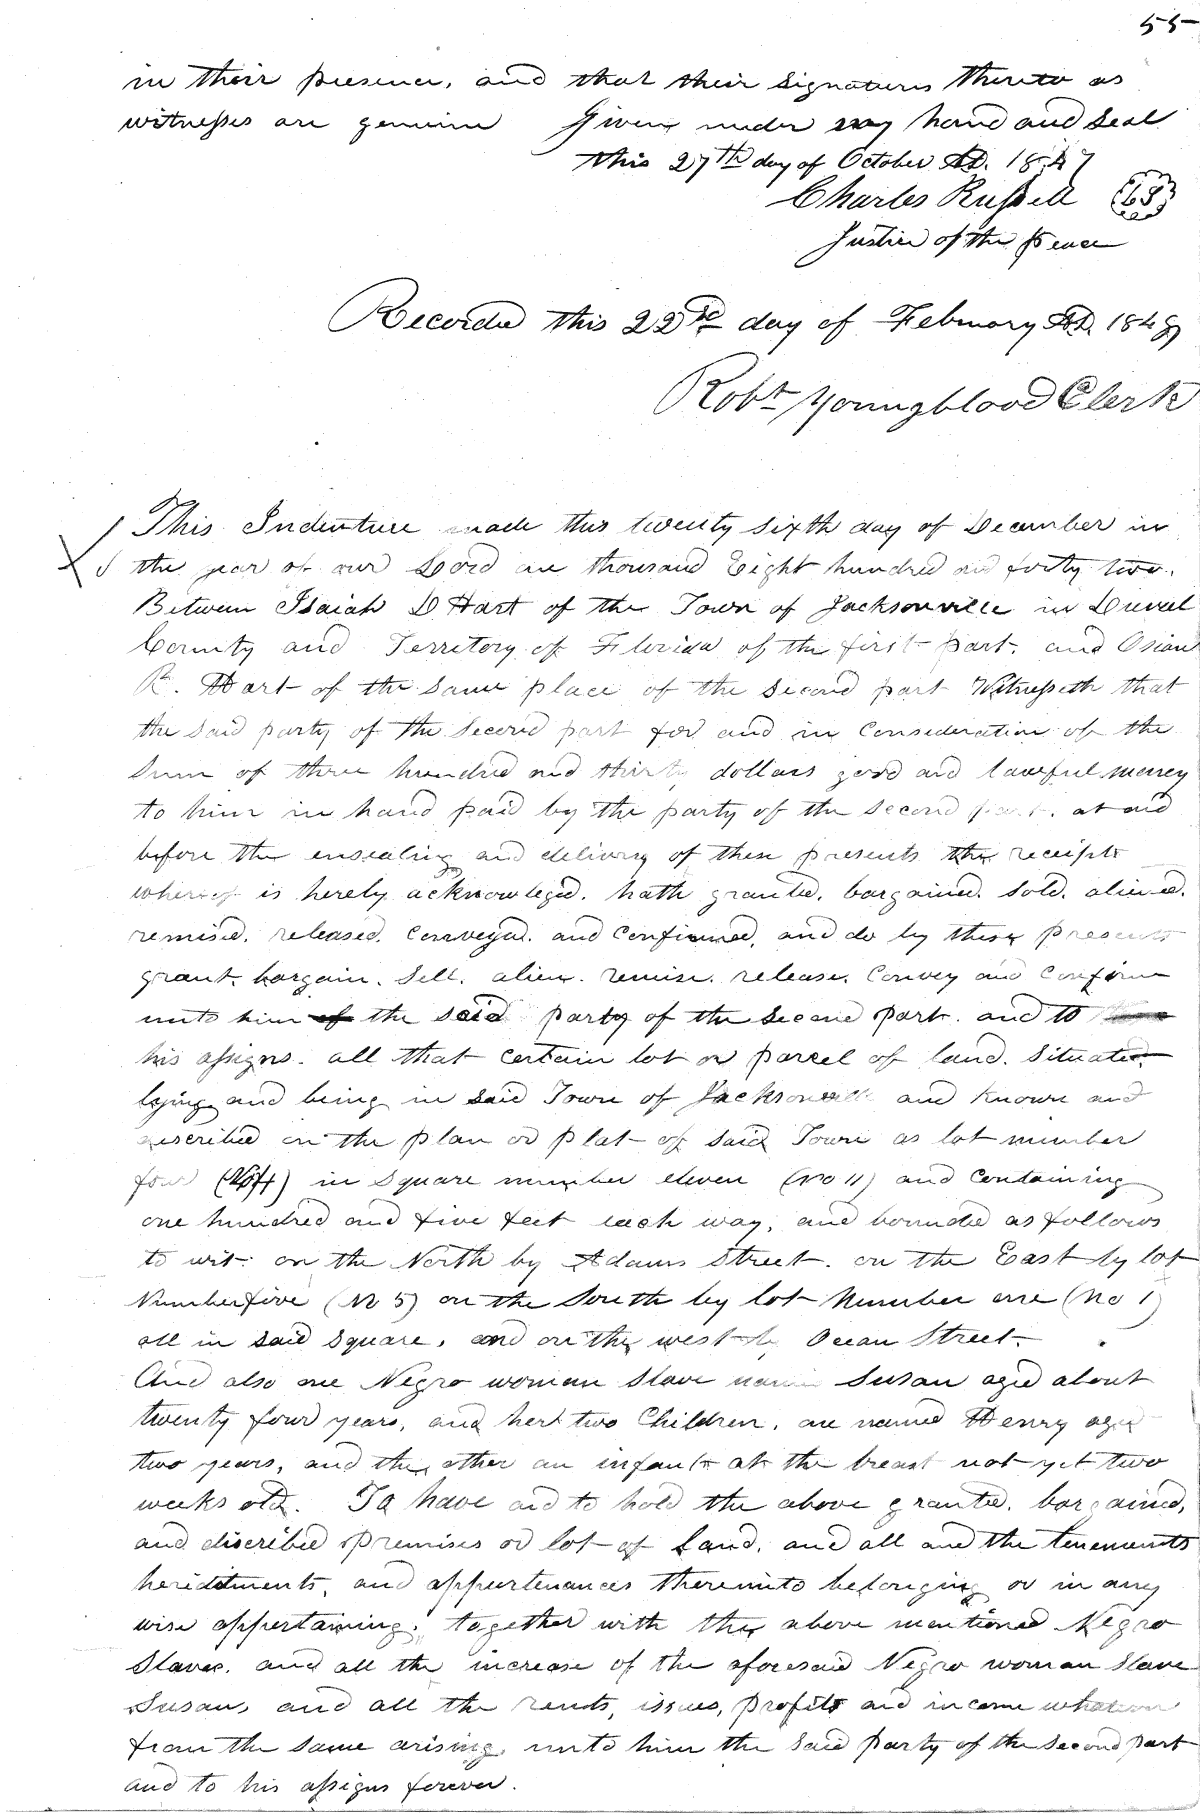 55
in their presence, and that their signatures thereto as
witnesses are genuine Given under my hand and Seal
this 27th day of October AD. 1847
Charles Russell LS
Justice of the Peace
Recorded this 22nd day of February AD. 1848
Robt Youngblood Clerk
This Indenture made this twenty sixth day of December in
the year of our Lord one thousand Eight hundred and forty two.
Between Isaiah D Hart of the Town of Jacksonville in Duval
County and Territory of Florida of the first part. and Osian
R. Hart of the same place of the second part Witnesseth that
the said party of the second part for and in Consideration of the
Sum of three hundred and thirty dollars good and lawful money
to him in hand paid by the party of the second part. at and
before the ensealing and delivery of these presents the receipt
whereof is hereby acknowleged. hath granted. bargained. Sold. aliened.
remised. released. Conveyed. and Confirmed, and do by these presents
grant. bargain. Sell. alien. remise. release. Convey and Confirm
unto him of the said party of the second part. and to
his assigns. all that certain lot or parcel of land. Situated
lying and being in said Town of Jacksonville and known and
discribed on the plan or plat of said Town as lot number
four (No 4) in Square number eleven (No 11) and Containing
one hundred and five feet each way, and bounded as follows
to wit. on the North by Adams Street. on the East by lot
Number five (No 5) on the South by lot Number one (No 1)
all in said square, and on the west by Ocean Street.
And also one Negro woman Slave named Susan aged about
twenty four years, and her two Children, one named Henry aged
two years, and the other an infant at the breast not yet two
weeks old. To have and to hold the above granted. bargained,
and discribed premises or lot of Land, and all and the tenements
heriditments, and appurtenances thereunto belonging or in any
wise appertaining, together with the above mentioned Negro
Slaves. and all the increase of the aforesaid Negro woman Slave
Susan, and all the rents, issues, profits and income whatever
from the same arising, unto him the said party of the second part
and to his assigns forever.